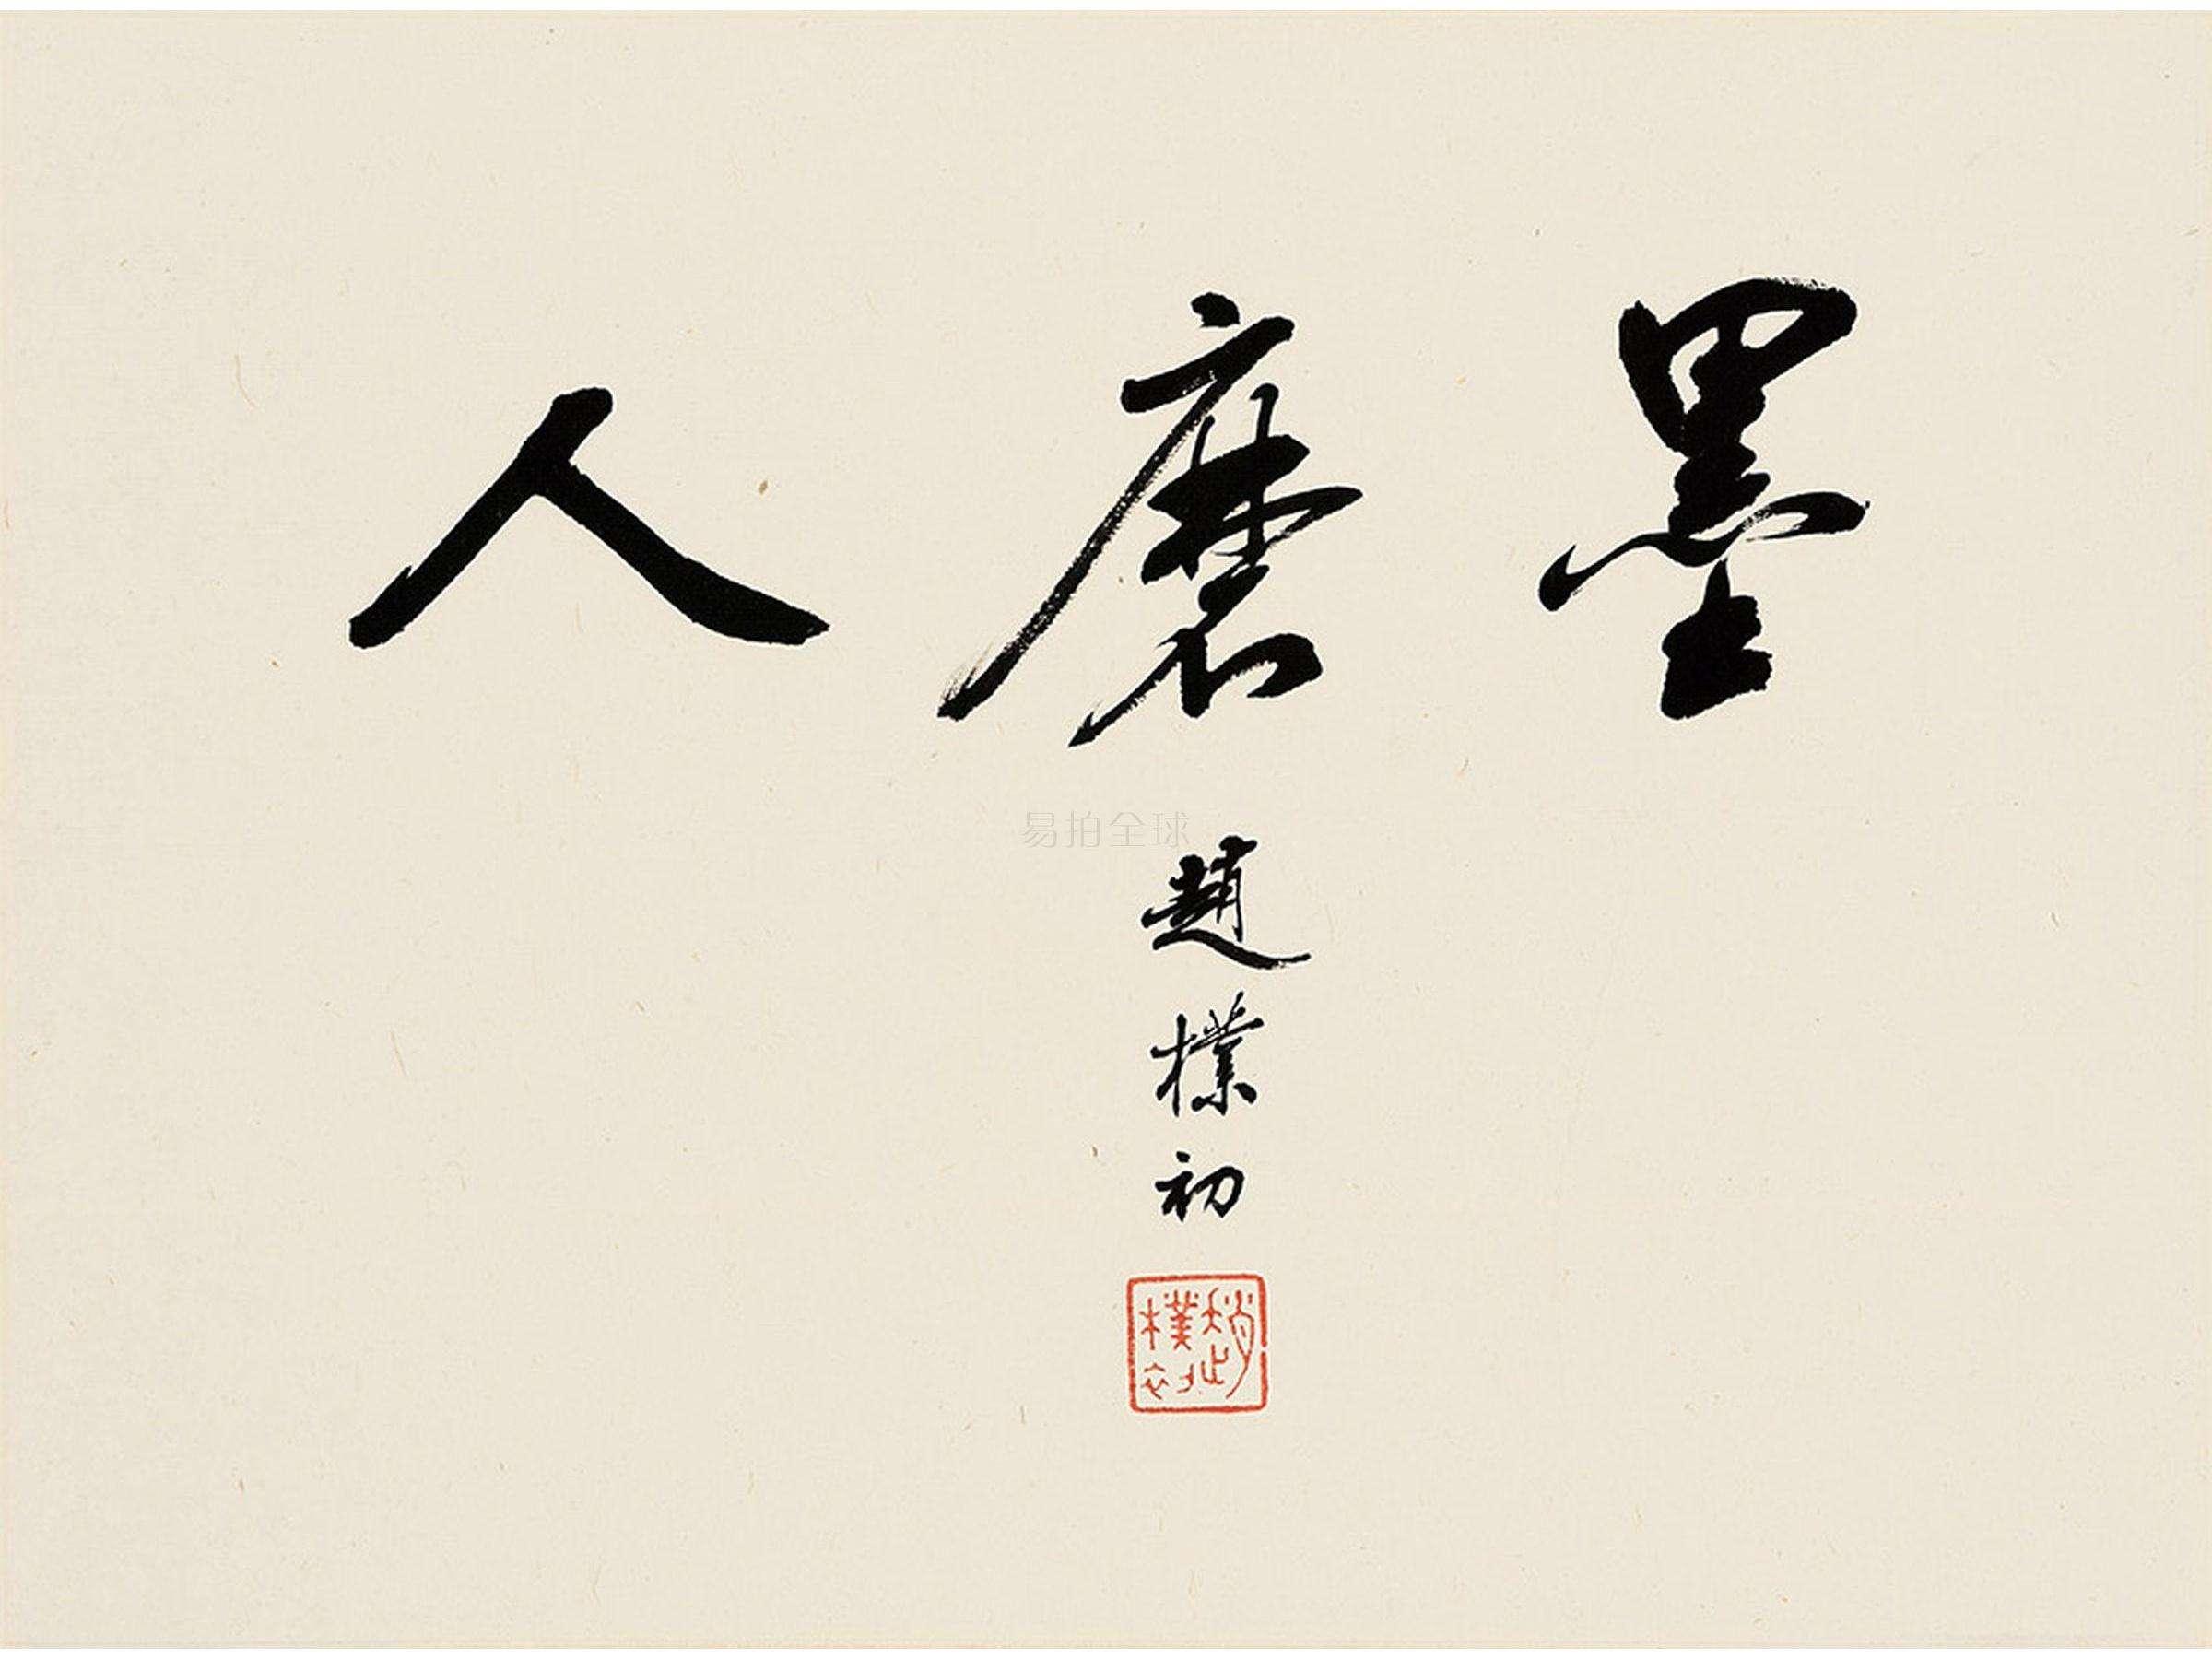 墨磨人
趙樸初
趙樸初
易拍全球